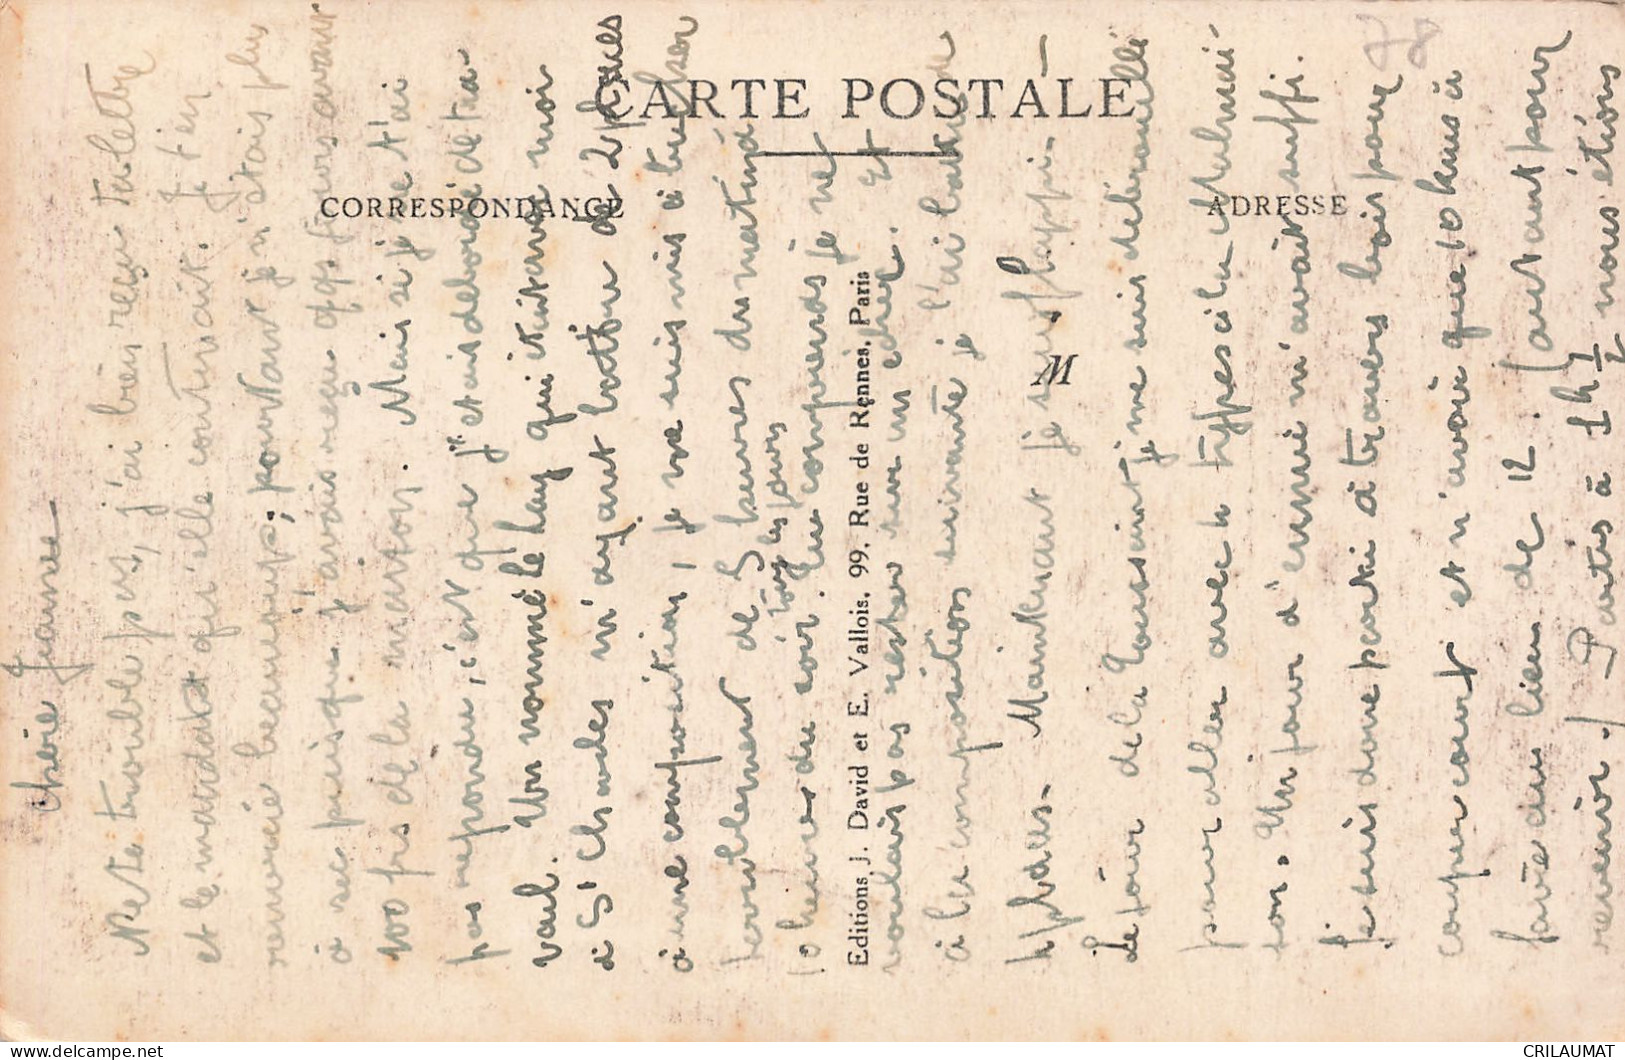 CARTE POSTALE
CORRESPONDANCE
ADRESSE
M
Editions J. David et E. Vallois, 99, Rue de Rennes, Paris
Chère Jeanne
Ne te trouble pas, j'ai bien reçu ta lettre
et le mandat qu'elle contenait. Je t'en
remercie beaucoup; pourtant je n'étais plus
à sec puisque j'avais reçu qqs jours avant
100 frs de la maison. Mais si je ne t'ai
pas répondu, c'est que j'étais débordé de tra-
vail. Un nommé le Lay qui était avec moi
à St Charles m'ayant battu de 2 places
à une composition, je me suis mis à bûcher
terriblement de 5 heures du matin à
10 heures du soir tous les jours. Tu comprends je ne
voulais pas rester sur un échec. Et
à la composition suivante je l'ai battu de
4 places. Maintenant je suis
Le jour de la Toussaint je me suis débrouillé
pour aller avec 2 types à la
son. Un jour d'ennui m'avait suffi.
Je suis donc parti à travers bois pour
couper court et n'avoir que 10 kms à
faire au lieu de 12. (autant pour
revenir.) Partis à 1h 1/2 nous étions
CRILAUMAT